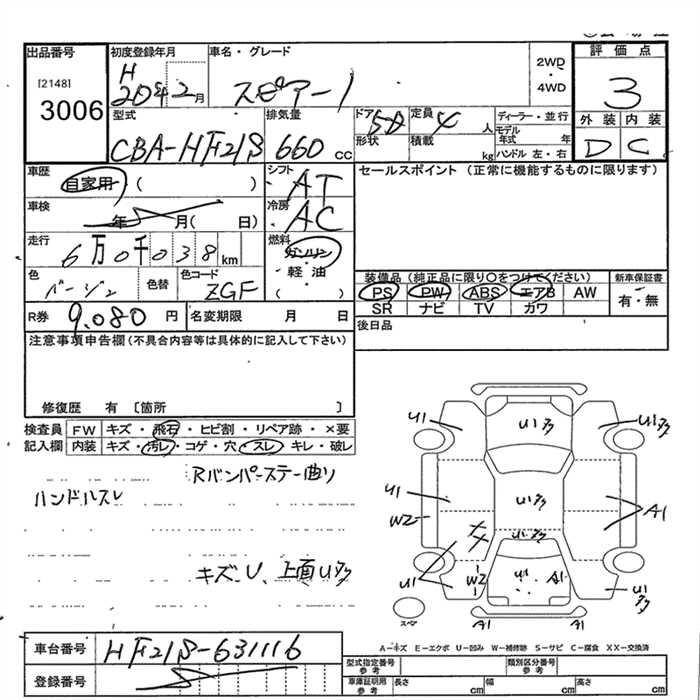 出品番号
[2148]
3006
初度登録年月
H
20年2月
車名・グレード
スピアーノ
2WD
・
4WD
評価点
3
外装 内装
D C
型式
CBA-HF21S
排気量
660 cc
ドア 5D
形状
定員 4 人
積載 kg
ディーラー・並行
モデル年式 年
ハンドル 左・右
車歴
自家用 ( )
シフト
AT
セールスポイント (正常に機能するものに限ります)
車検
年 月( 日)
冷房
AC
走行
6万0千038km
燃料
ガソリン
・
軽油
( )
色
ベージュ
色替
色コード
ZGF
装備品 (純正品に限り○をつけてください)
PS PW ABS エアB AW
SR ナビ TV カワ
新車保証書
有・無
R券 9,080 円
名変期限 月 日
後日品
注意事項申告欄(不具合内容等は具体的に記入して下さい)
修復歴 有 〔箇所 〕
検査員 FW キズ・飛石・ヒビ割・リペア跡・×要
記入欄 内装 キズ・汚レ・コゲ・穴・スレ・キレ・破レ
Rバンパーステー曲り
ハンドルスレ
キズ・U、上面U多
U1
U1多
U1多
U1
W2
U1多
A1
U1多
U1
W2
U1
A1
U1多
スペア
A1
A1
A-キズ E-エクボ U-凹み W-補修跡 S-サビ C-腐食 XX-交換済
車台番号 HF21S-631116
登録番号
型式指定番号
参考
類別区分番号
参考
車庫証明用
参考
長さ cm
幅 cm
高さ cm